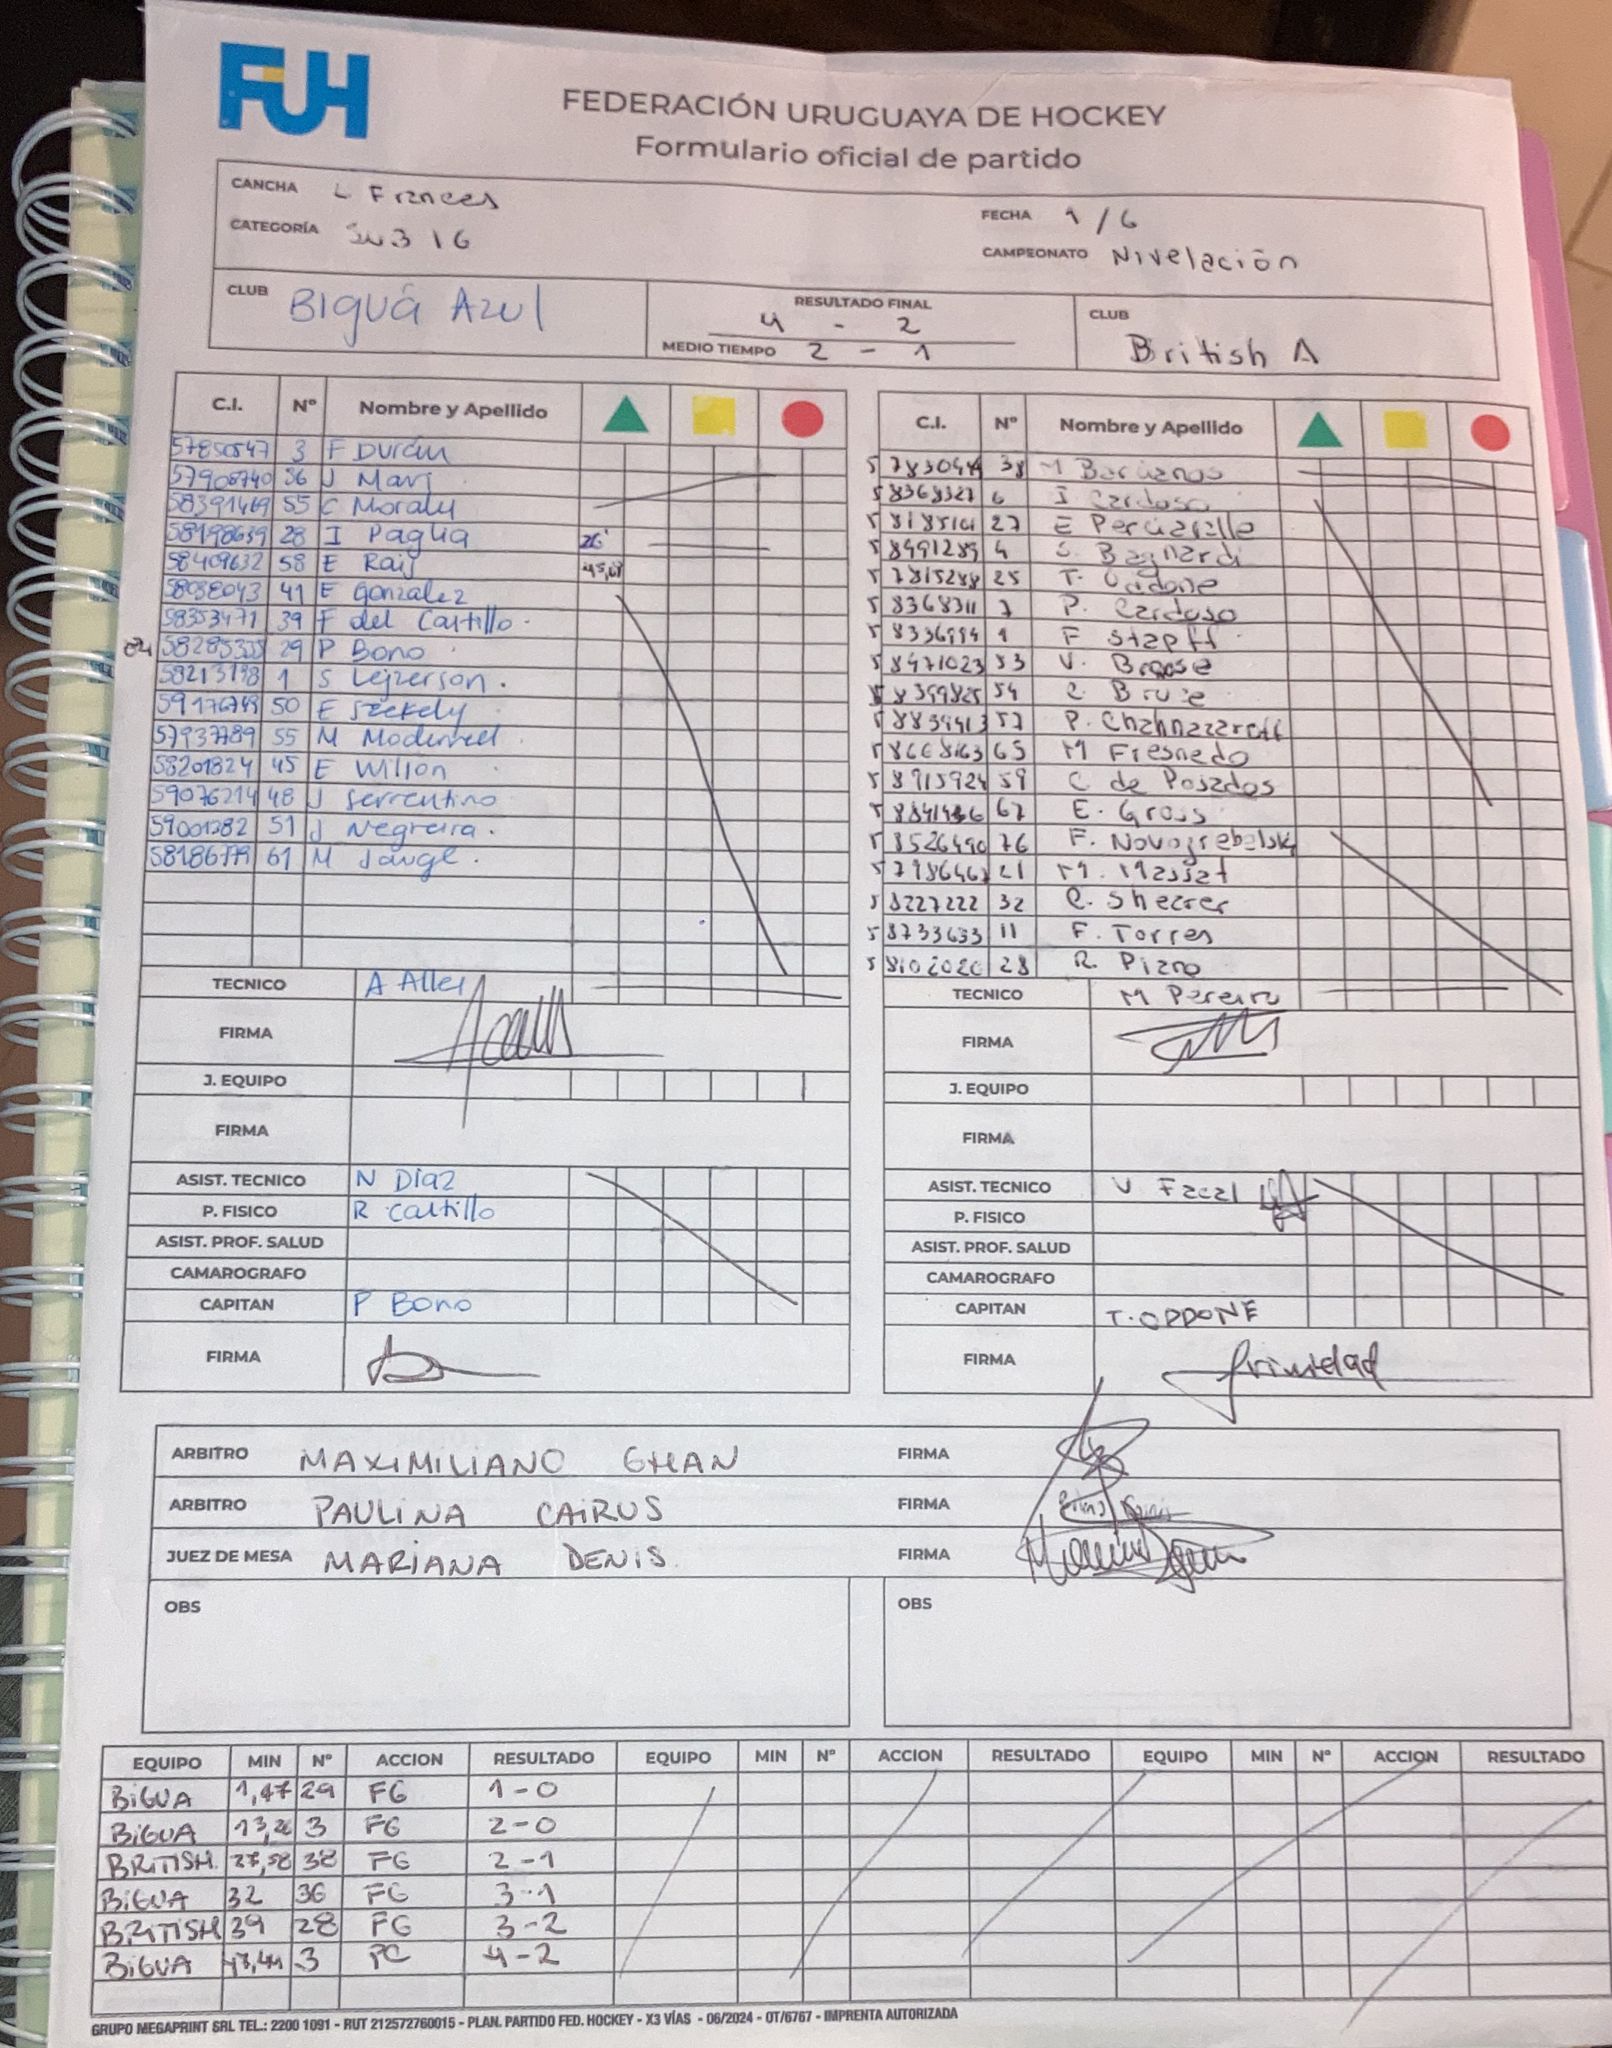 FUH
FEDERACIÓN URUGUAYA DE HOCKEY
Formulario oficial de partido
CANCHA L Frances
FECHA 1/6
CATEGORÍA SUB 16
CAMPEONATO Nivelación
CLUB BIGUÁ AZUL
RESULTADO FINAL 4 - 2
MEDIO TIEMPO 2 - 1
CLUB British A
C.I. Nº Nombre y Apellido
57850547 3 F Durán
57908740 36 J Mari
58391469 55 C Moraly
58198639 28 I Paglia 26'
58409632 58 E Raij
58038043 41 E Gonzalez
58353471 39 F del Castillo
58285335 29 P Bono
58213198 1 S Lejzerson
59176749 50 E Szekely
57937789 55 M Modernell
58201824 45 E Wilson
59076214 48 J Serrentino
59001382 51 J Negreira
58186779 61 M Sauge
TECNICO A Aller
FIRMA
J. EQUIPO
FIRMA
ASIST. TECNICO N Díaz
P. FISICO R Castillo
ASIST. PROF. SALUD
CAMAROGRAFO
CAPITAN P Bono
FIRMA
C.I. Nº Nombre y Apellido
38 M
58368327 6 I Cardoso
58185101 27 E
58491289 4 S. Bagnardi
57815288 25 T. Oddone
58368311 7 P. Cardoso
58336994 1 F Stapff
58471023 53 V.
58399825 54
58839913 57 P.
58608163 65 M Fresnedo
58915924 59 C de Posadas
67 E. Gross
58526490 76 F. Novogrebelsky
21 M.
58227222 32 C. Shearer
58733633 11 F. Torres
58102020 28 R. Piano
TECNICO M Pereira
FIRMA
J. EQUIPO
FIRMA
ASIST. TECNICO V Facal
P. FISICO
ASIST. PROF. SALUD
CAMAROGRAFO
CAPITAN T. ODDONE
FIRMA Trinidad
ARBITRO MAXIMILIANO GHAN FIRMA
ARBITRO PAULINA CAIRUS FIRMA
JUEZ DE MESA MARIANA DENIS FIRMA
OBS
OBS
EQUIPO MIN Nº ACCION RESULTADO EQUIPO MIN Nº ACCION RESULTADO EQUIPO MIN Nº ACCION RESULTADO
BIGUA 1,47 29 FG 1-0
BIGUA 13,26 3 FG 2-0
BRITISH 27,58 38 FG 2-1
BIGUA 32 36 FG 3-1
BRITISH 39 28 FG 3-2
BIGUA 3 PC 4-2
GRUPO MEGAPRINT SRL TEL.: 2200 1091 - RUT 212572760015 - PLAN. PARTIDO FED. HOCKEY - X3 VÍAS - 06/2024 - OT/6767 - IMPRENTA AUTORIZADA